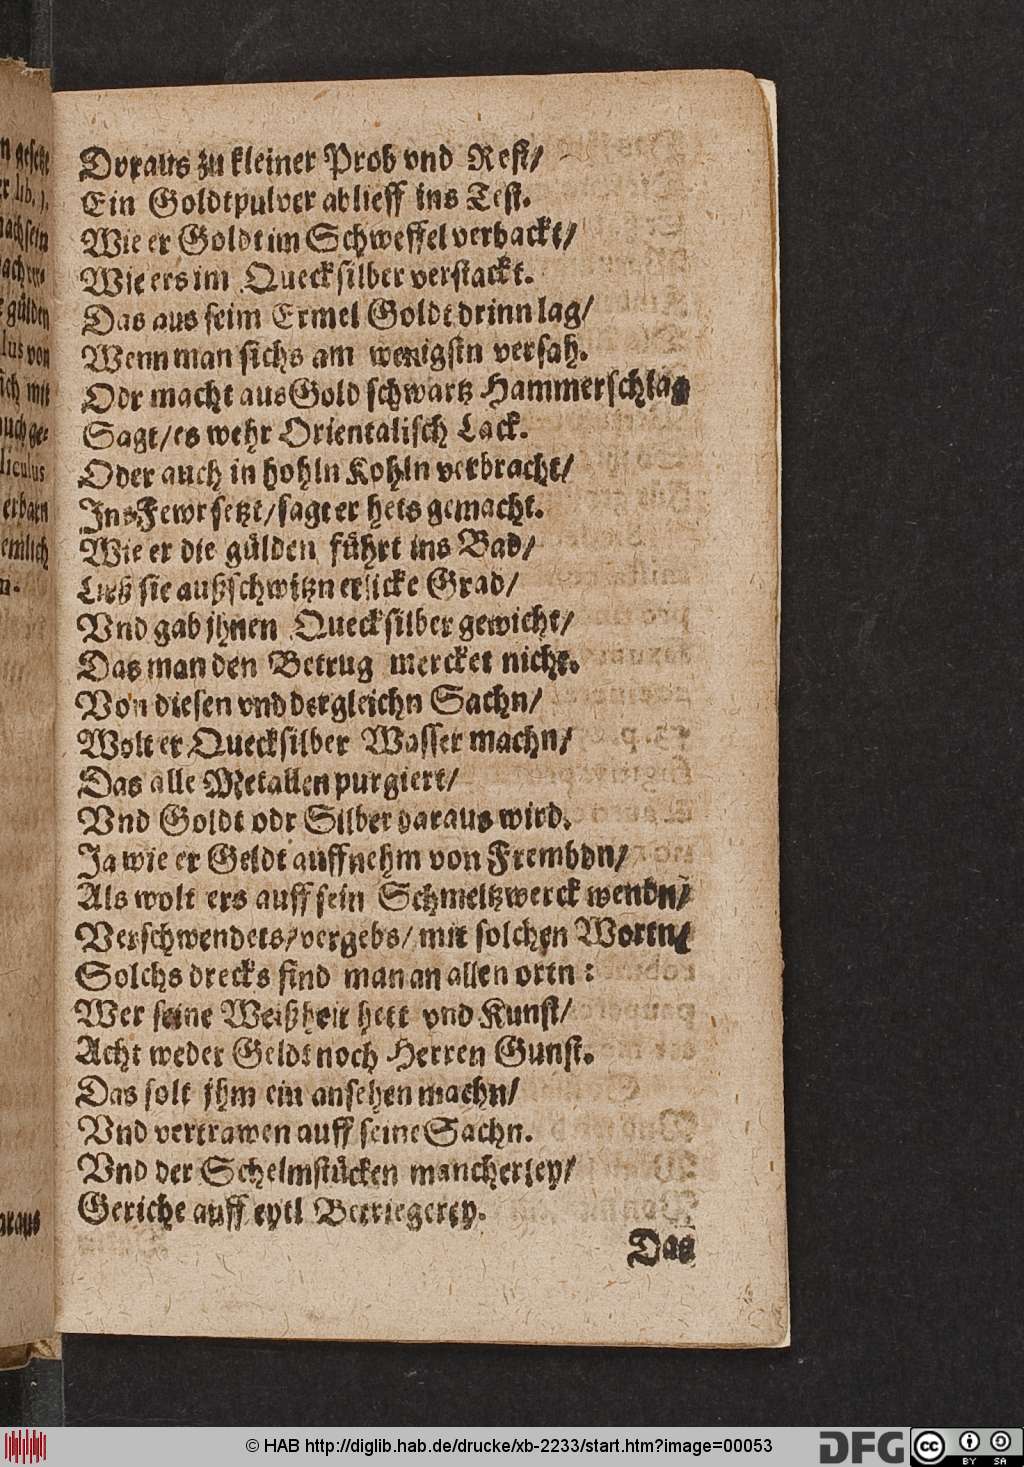 n gesetze
er lib. 1.
nach sein
gülden
lus von
sich mit
auch ge-
diculus
erbarn
emlich
n.
araus
Doraus zu kleiner Prob vnd Rest/
Ein Goldtpulver ablieff ins Test.
Wie er Goldt im Schweffel verbackt/
Wie ers im Quecksilber verstackt.
Das aus seim Ermel Goldt drinn lag/
Wenn man sichs am wenigstn versah.
Odr macht aus Gold schwartz Hammerschlag
Sagt/es wehr Orientalisch Lack.
Oder auch in hohln Kohln verbracht/
Ins Fewr setzt/sagt er hets gemacht.
Wie er die gülden führt ins Bad/
Ließ sie außschwitzn etlicke Grad/
Vnd gab jhnen Quecksilber gewicht/
Das man den Betrug mercket nicht.
Von diesen vnd dergleichn Sachn/
Wolt er Quecksilber Wasser machn/
Das alle Metallen purgiert/
Vnd Goldt odr Silber daraus wird.
Ja wie er Geldt auffnehm von Frembdn/
Als wolt ers auff sein Schmeltzwerck wendn/
Verschwendets/vergebs/mit solchen Wortn/
Solchs drecks find man an allen ortn:
Wer seine Weißheit hett vnd Kunst/
Acht weder Geldt noch Herren Gunst.
Das solt jhm ein ansehen machn/
Vnd vertrawen auff seine Sachn.
Vnd der Schelmstücken mancherley/
Gericht auff eytl Betriegerey.
Das
© HAB http://diglib.hab.de/drucke/xb-2233/start.htm?image=00053
DFG
cc
BY SA